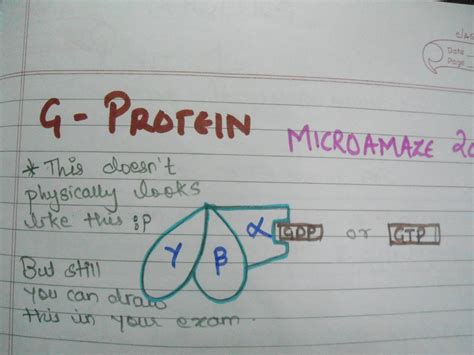 Date
Page
G - PROTEIN
MICROAMAZE
* This doesn't
physically looks
like this :P
γ
β
α
GDP
or
GTP
But still
you can draw
this in your exam.